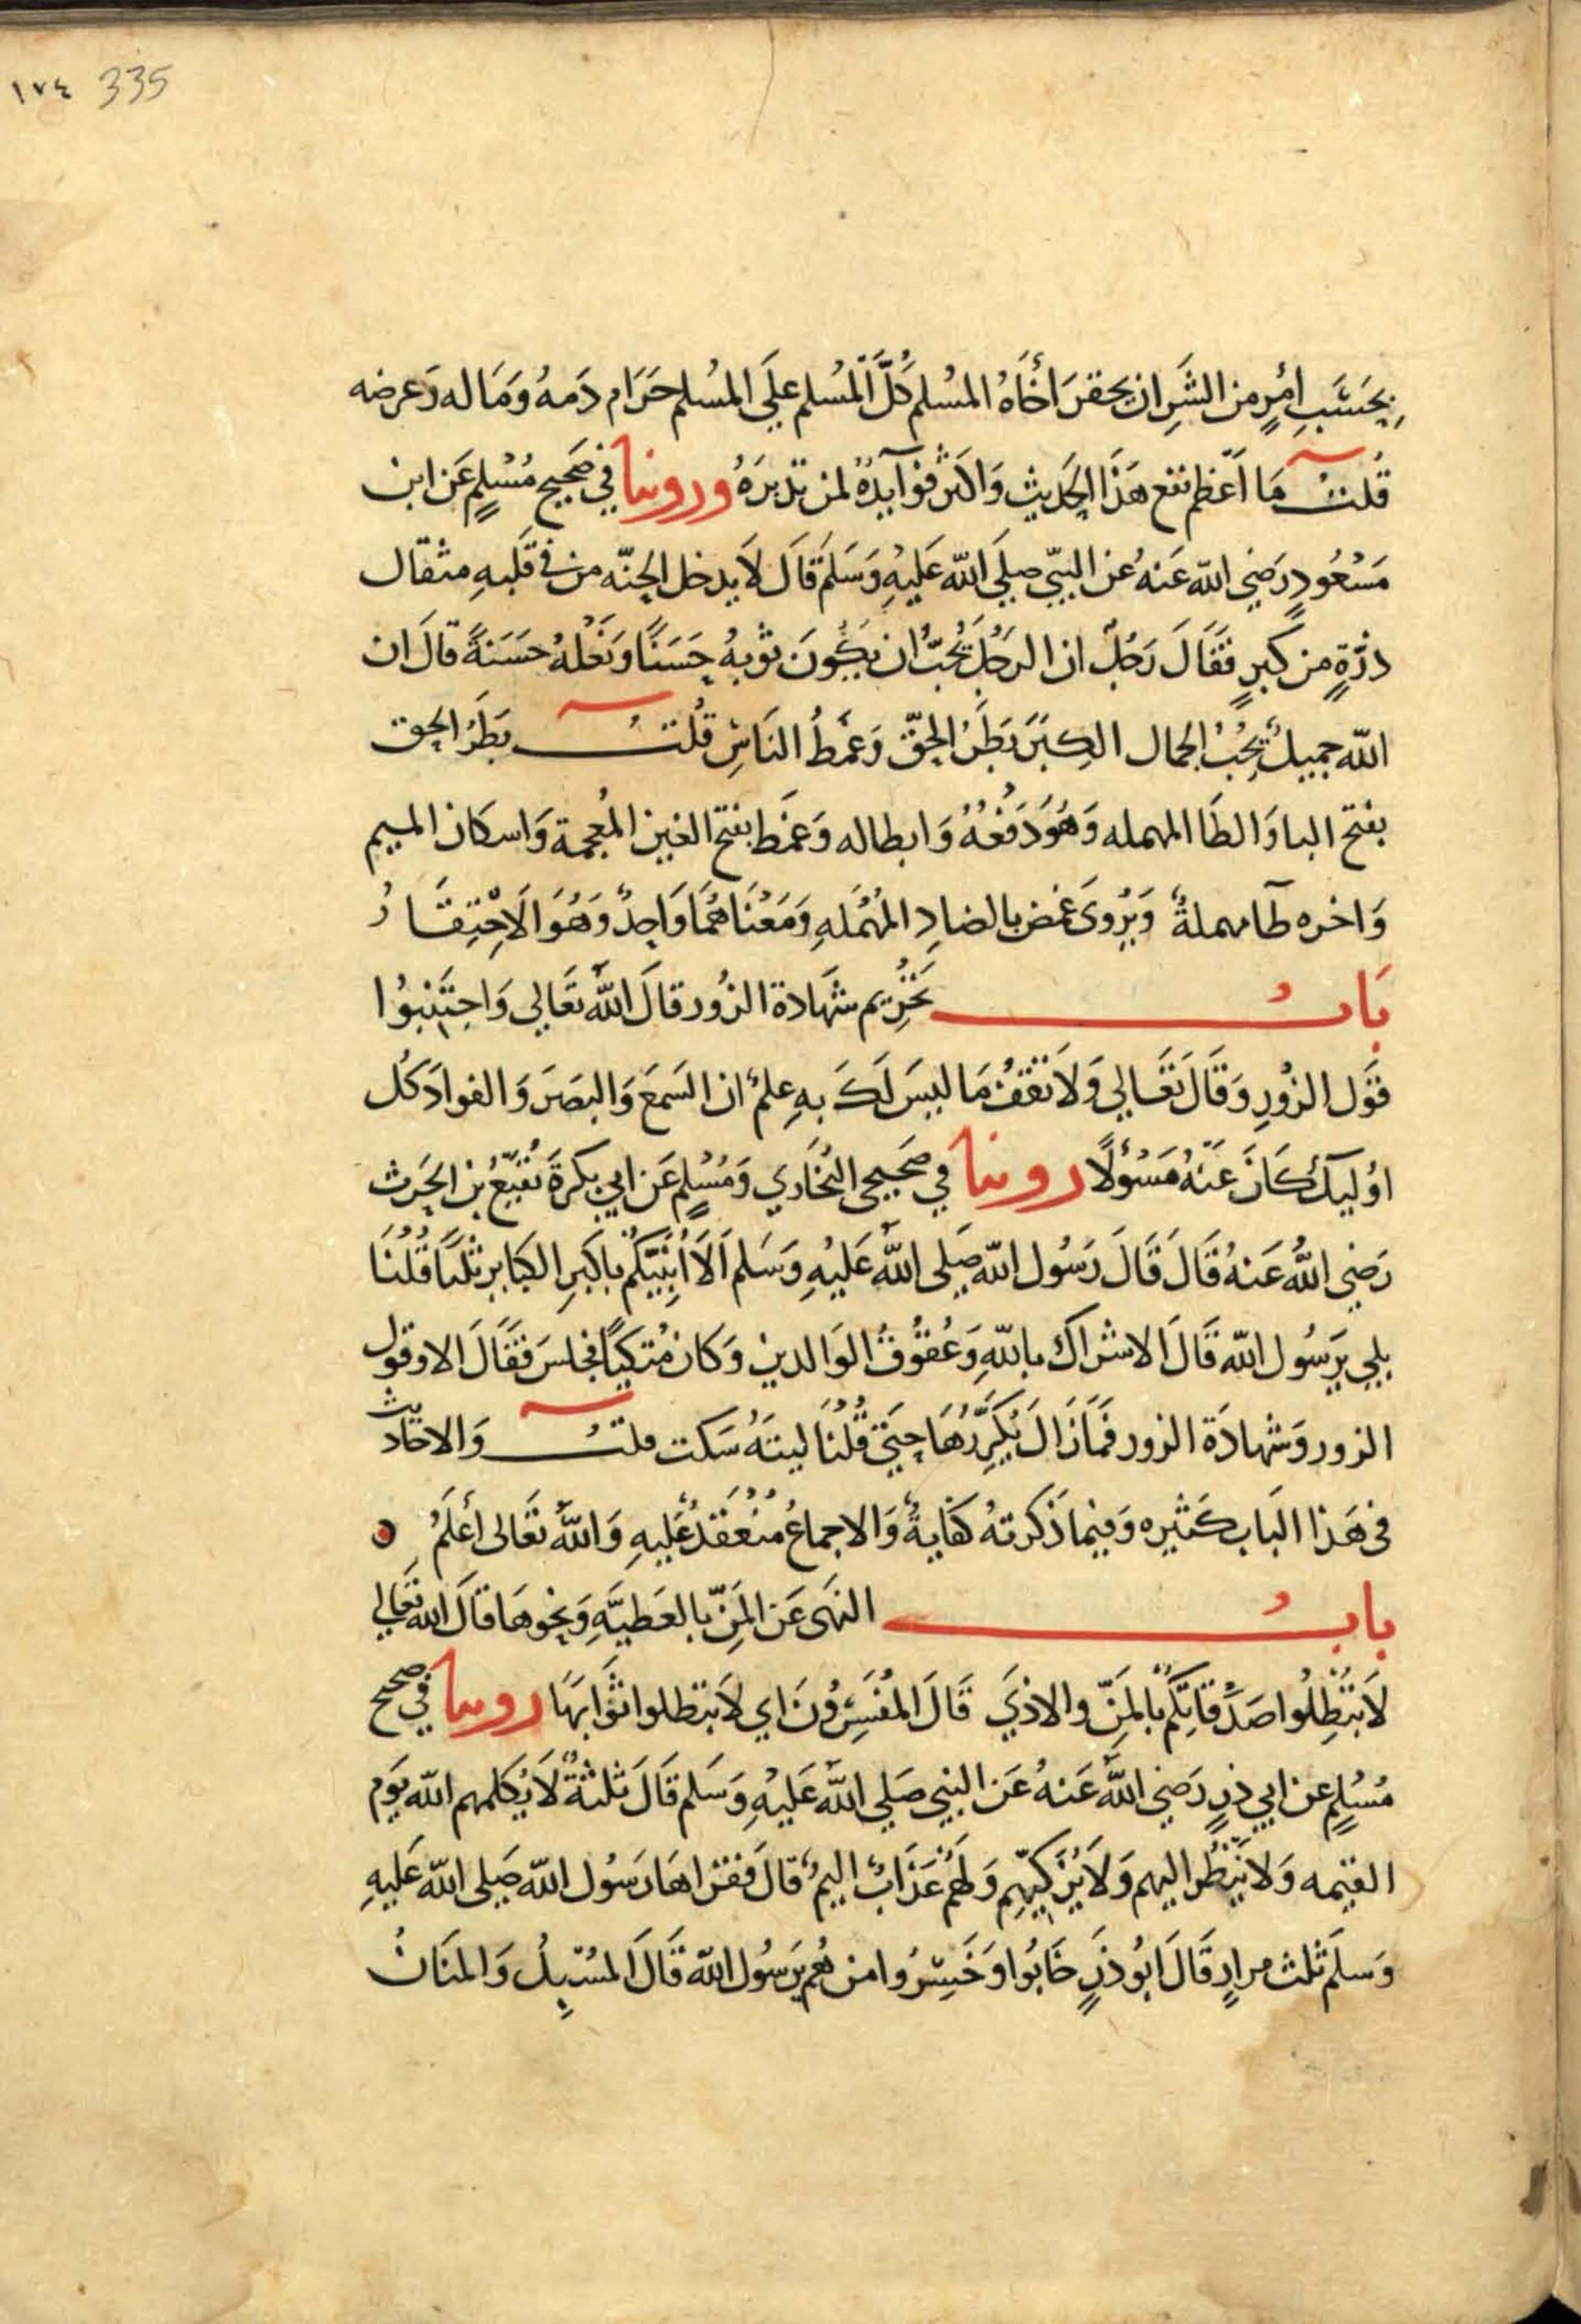 ١٧٤ 335
بِحَسَبِ امْرٍ من الشَرِ ان يحقرَ أخَاهُ المسُلم كُلَّ المُسلم عَلَى المسُلم حَرَام دَمهُ وَمَاله وَعرضه
قُلتُ مَا أعْظم نفع هَذَا الحَدِيث وَاكثرَ فوَآيدهُ لمن تدبرَهُ وروينا في صَحِيح مُسْلِمٍ عَن ابن
مَسْعُودٍ رَضِيَ الله عَنهُ عن النبيّ صلى الله عَليهِ وَسَلم قَالَ لاَ يدخل الجنّه من في قَلبهِ مثقال
ذرَّةٍ من كبرٍ فقَالَ رَجُلٌ ان الرجُلَ يُحبُّ ان يَكُونَ ثوبهُ حَسَنًا وَنَعْلهُ حَسَنةً قالَ ان
الله جميلٌ يُحِبُّ الجمال الكِبرَ بَطَرُ الحقّ وَغَمْطُ النَاسِ قُلتُ بَطَرُ الحق
بفتح البا وَالطَا المهمله وَهُوَ دَفعُهُ وَابطاله وَغَمط بفتح الغين المُعجمة وَاسكان الميم
وَاخره طآ مهملةٌ وَيرُوىَ غَمض بالضادِ المُهمَلهِ وَمَعْنَاهُمَا وَاحِدٌ وَهُوَ الاحْتِقَارُ
بَابُ تَحْرِيم شهَادة الزُور قالَ اللهُ تَعَالى وَاجتَنِبوُا
قوَل الزوُرِ وَقَالَ تعَالى وَلاَ تَقْفُ مَا ليسَ لَكَ بهِ عِلمٌ ان السَمعَ وَالبصَرَ وَالفوادَ كُل
اوُليكَ كَانَ عَنهُ مَسْؤُلًا روينا في صَحِيحي البُخَاري وَمُسْلِمٍ عَن ابي بكرةَ نُفَيْعُ بن الحَرث
رَضِي اللهُ عَنهُ قَالَ قَالَ رَسُول الله صَلى اللهُ عَليْهِ وَسَلم اَلاَ اُنَبِّيَكُمْ باكَبرِ الكبَاير ثلثًا قُلْنَا
بلي يَرسُول الله قَالَ الاشرَاك بالله وَعُقوُقُ الوَالدين وَكان مُتكيًا فجلسَ فقَالَ الا وقول
الزور وَشهادَة الزور فَمَا زَالَ يُكَرِّرُهَا حَتى قُلْنَا ليتَهُ سَكت قلتُ وَالاحاديث
في هَذا البَاب كثيره وَفيمَا ذَكرتهُ كفايةٌ وَالاجماعُ مُنْعَقدٌ عَليهِ وَاللهُ تعَالى أعْلمُ
بابُ النهَى عَن المَنّ بالعَطيَّهِ وَنحوهَا قالَ الله تعَالي
لاَ تُبْطِلُوا صَدَقَاتِكُم بالمَنّ والاذيَ قَالَ المُفسِّرُونَ اي لاَ تبطلوا ثوَابهَا روينا في صحيح
مُسْلِمٍ عن ابي ذرٍ رَضِي اللهُ عَنهُ عَن النبي صَلي اللهُ عَليْهِ وَسَلم قَالَ ثلثةٌ لاَ يُكلمهم الله يَوم
القيمه وَلا يَنظُر اليهم وَلاَ يُزَكيّهم وَلَهُمْ عَذَابٌ اليمٌ قالَ فقراهَا رَسُول الله صَلى الله عَليهِ
وَسلم ثلث مرارٍ قَالَ ابُو ذرٍ خَابوُا وَخَسِرُوا من هُم يَرسُول الله قَالَ المسُبلُ وَالمنَانُ